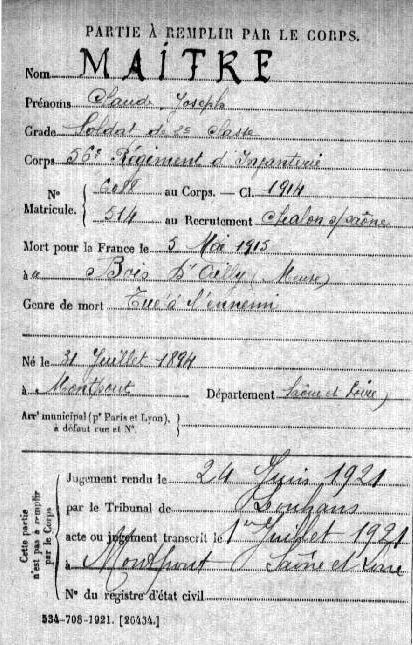 PARTIE À REMPLIR PAR LE CORPS.
Nom MAITRE
Prénoms Claude Joseph
Grade Soldat de 2e Classe
Corps 56e Régiment d'Infanterie
N° 6088 au Corps. — Cl. 1914
Matricule. 514 au Recrutement Chalon s/Saône
Mort pour la France le 5 Mai 1915
à Bois d'Ailly (Meuse)
Genre de mort Tué à l'ennemi
Né le 31 Juillet 1894
à Montpont Département Saône et Loire
Arrt municipal (pr Paris et Lyon),
à défaut rue et N°.
Cette partie
n'est pas à remplir
par le Corps.
Jugement rendu le 24 Juin 1921
par le Tribunal de Louhans
acte ou jugement transcrit le 1er Juillet 1921
à Montpont Saône et Loire
N° du registre d'état civil
534-708-1921. [26434.]